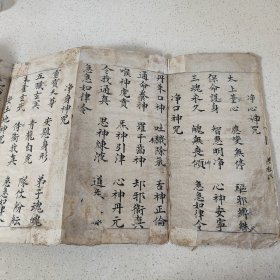 净心神咒
太上臺 應變無停 驅邪縛魅
保命護身 智慧明净 心神安寧
三魂永久 魄無喪傾 急急如律令
净口神咒
丹朱口神 吐穢除氛 舌神正倫
通命養神 羅千齒神 却邪衛真
喉神虎賁 炁神引津 心神丹元
令我通真 思神鍊液 道炁
急急如律令
净身神咒
靈寶天尊 安慰身形 弟子魂魄
五臟玄冥 青龍白虎 隊仗紛紜
朱雀玄武 侍衛我真 急急如律令
安土地神咒